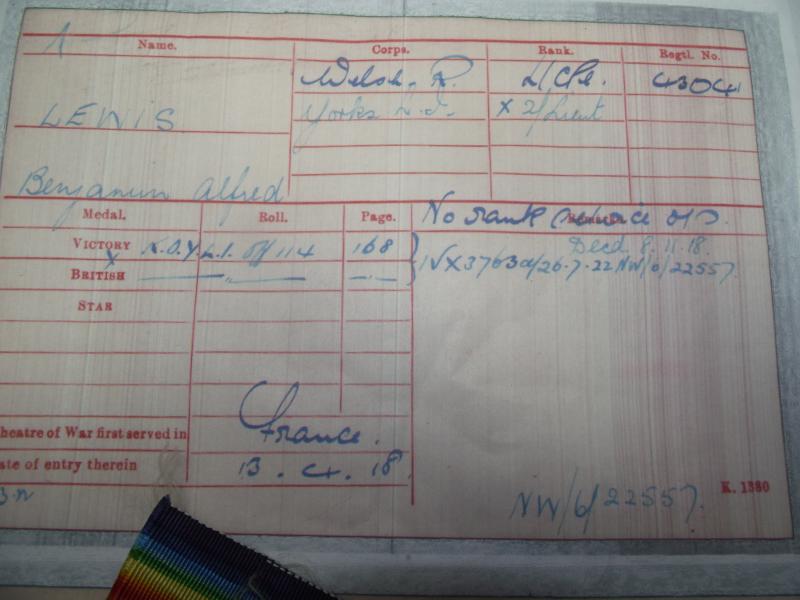 Name. Corps. Rank. Regtl. No.
Welsh. R. L/Cpl. 4304
LEWIS Yorks L.I. X 2/Lieut
Benjamin Alfred
Medal. Roll. Page. No rank service o/s. Remarks.
VICTORY K.O.Y.L.I. Off 114 168 Decd 8.11.18.
X BRITISH —— " —— — " — IVX3763a/26.7.22 NW/6/22557.
STAR
Theatre of War first served in France.
ate of entry therein 13.4.18.
K. 1380
NW/6/22557.